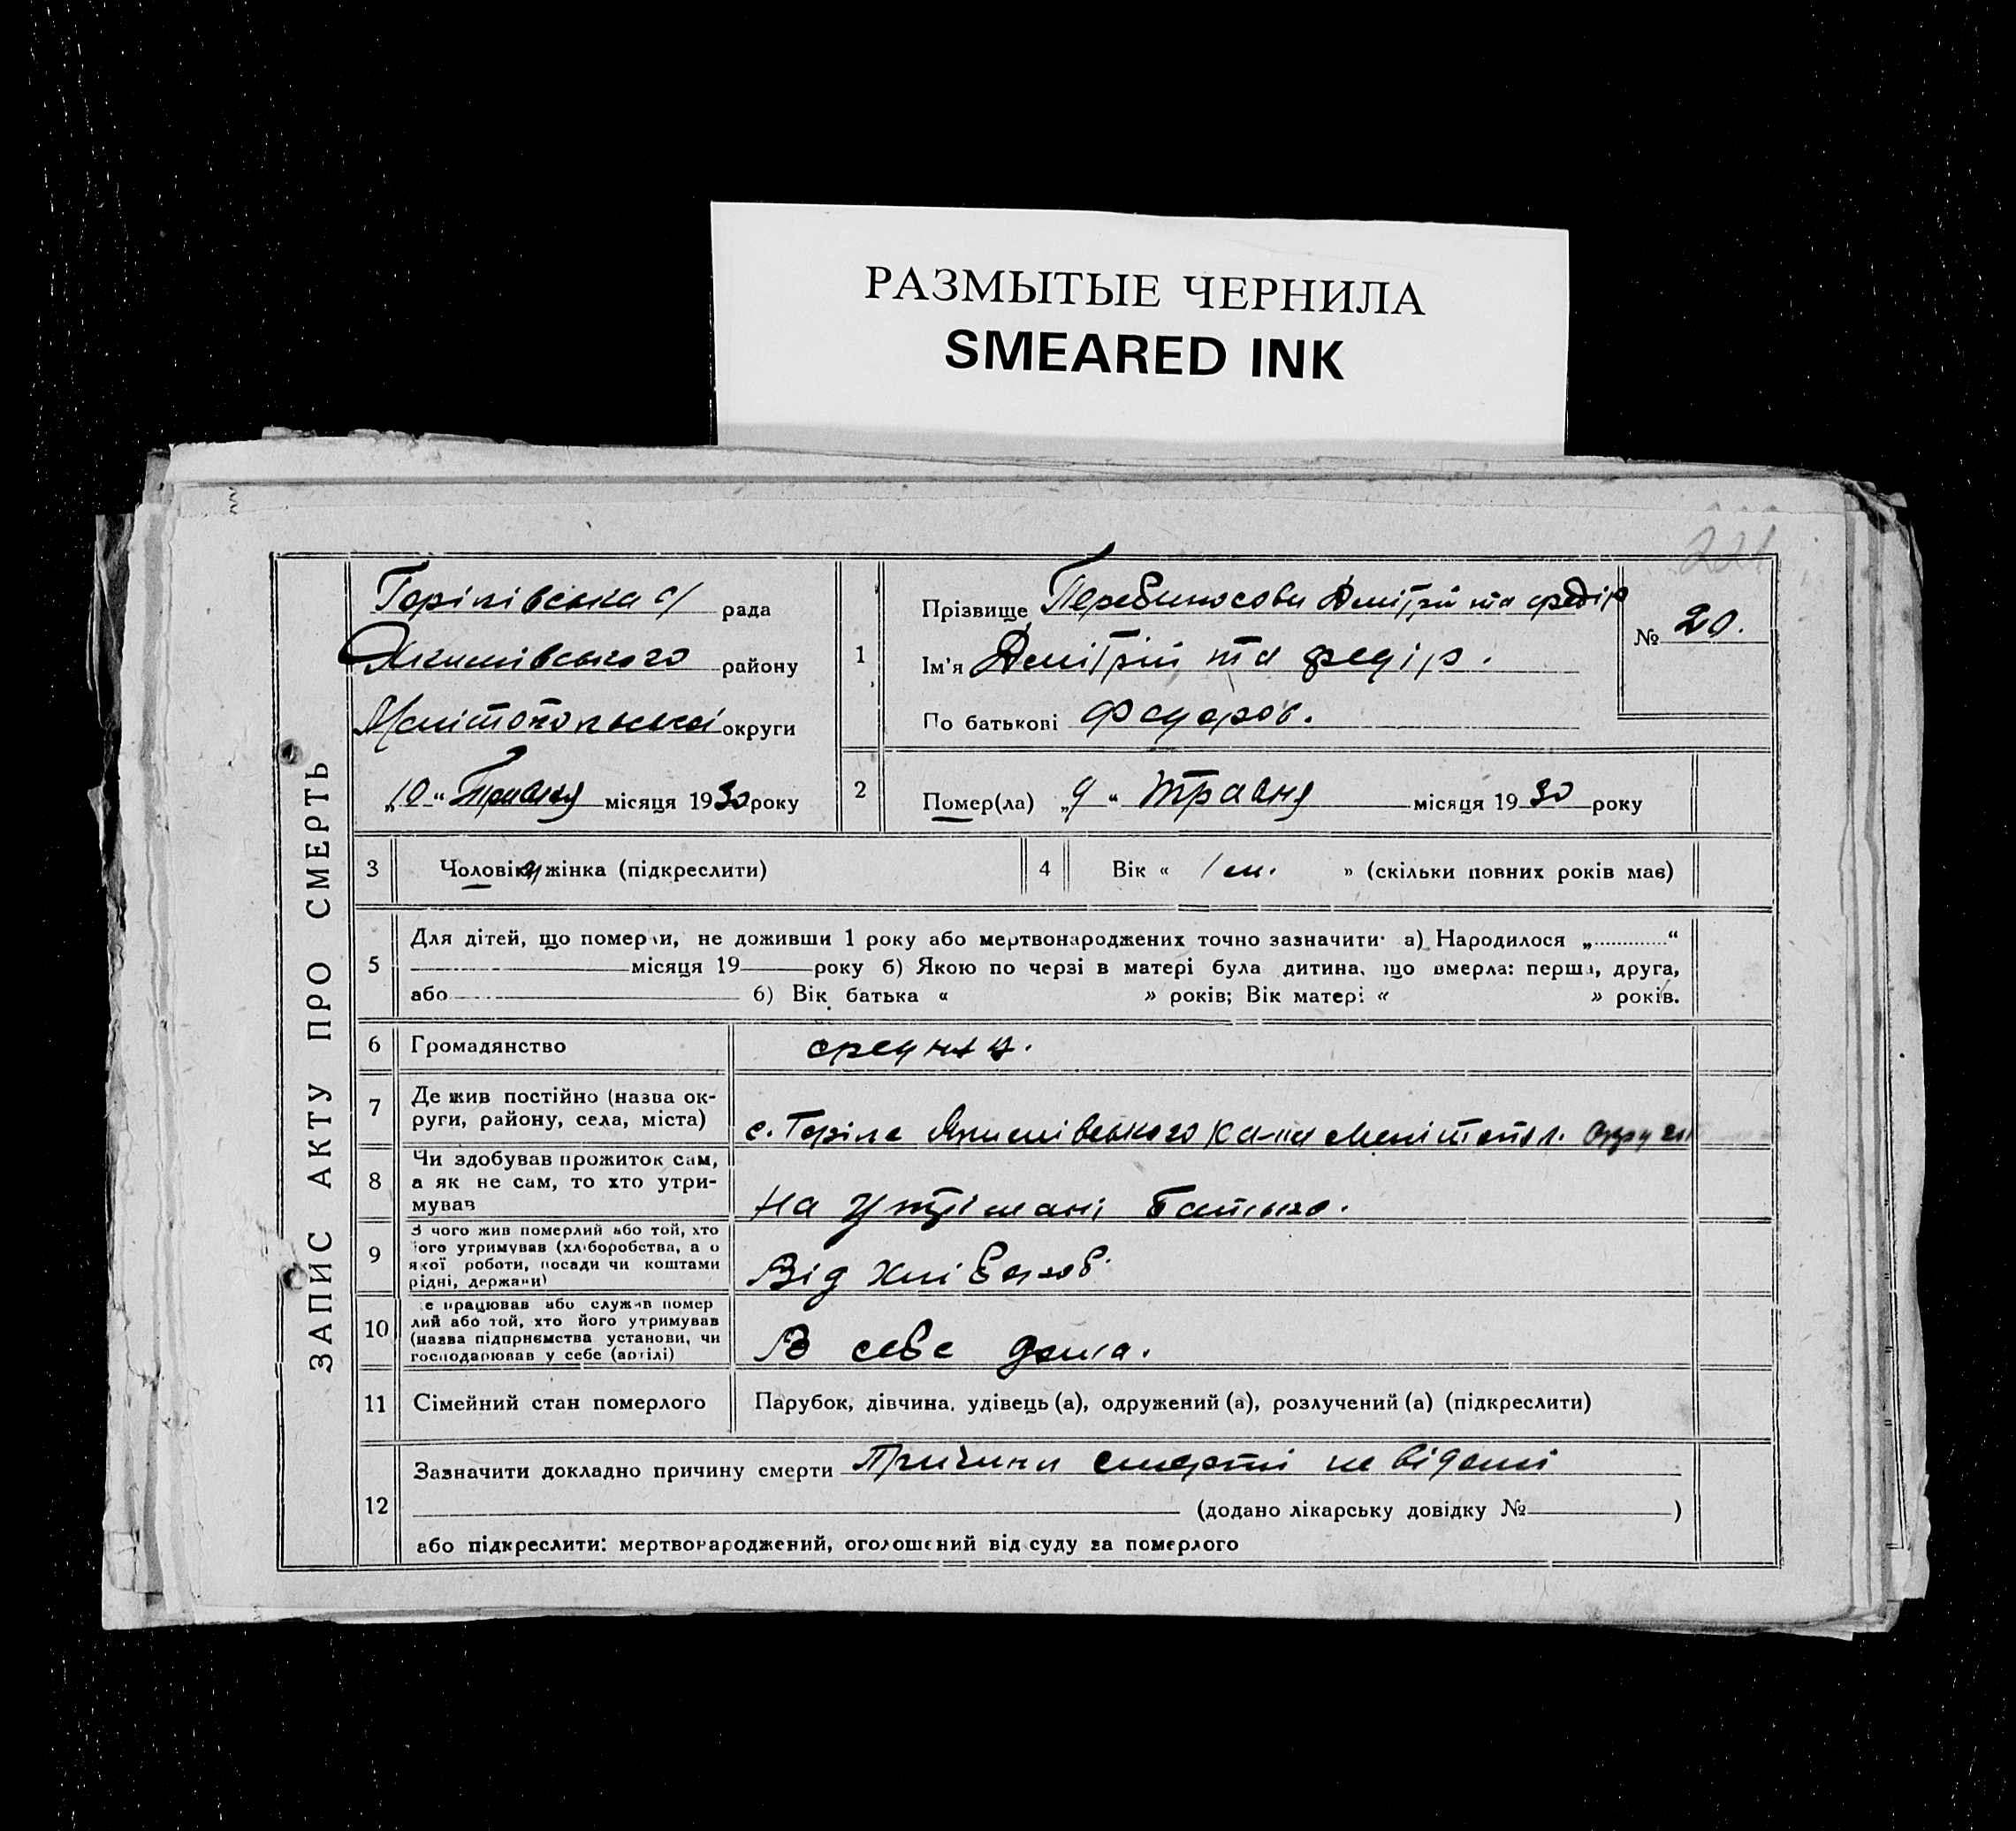 РАЗМЫТЫЕ ЧЕРНИЛА
SMEARED INK
221
ЗАПИС АКТУ ПРО СМЕРТЬ
Горілівська с/ рада
Якимівського району
Мелітопольської округи
„10“ Травня місяця 1930 року
1
Прізвище Дмітрій та Федір
Ім'я Дмітрій та Федір.
По батькові Федоров.
№ 20.
2
Помер(ла) „9“ Травня місяця 1930 року
3 Чоловік, жінка (підкреслити)
4 Вік « 1 м. » (скільки повних років має)
5
Для дітей, що померли, не доживши 1 року або мертвонароджених точно зазначити: а) Народилося „.............“
місяця 19 року б) Якою по черзі в матері була дитина, що вмерла: перша, друга,
або 6) Вік батька « » років; Вік матері « » років.
6 Громадянство
7 Де жив постійно (назва ок-
руги, району, села, міста)
с. Горіле Якимівського Мелітопол. округи
8 Чи здобував прожиток сам,
а як не сам, то хто утри-
мував
на утрімані батька.
9 З чого жив померлий або той, хто
його утримував (хліборобства, а о
якої роботи, посади чи коштами
рідні, держави)
Від хлібороб.
10 е працював або служив помер
лий або той, хто його утримував
(назва підприємства установи, чи
господарював у себе (артілі)
В себе дома.
11 Сімейний стан померлого
Парубок, дівчина, удівець (а), одружений (а), розлучений (а) (підкреслити)
12
Зазначити докладно причину смерти Причини смерті не відомі
(додано лікарську довідку № )
або підкреслити: мертвонароджений, оголошений від суду за померлого